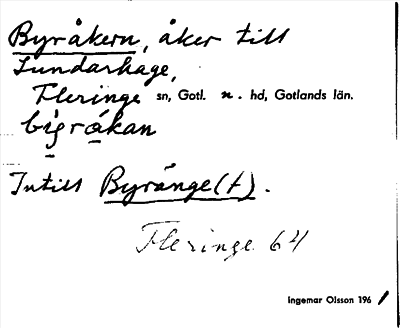 Byråkern, åker till
Sundarhage,
Fleringe sn, Gotl. n. hd, Gotlands län.
bi̬gråkan
Intill Byränge(t).
Fleringe 64
Ingemar Olsson 196 1